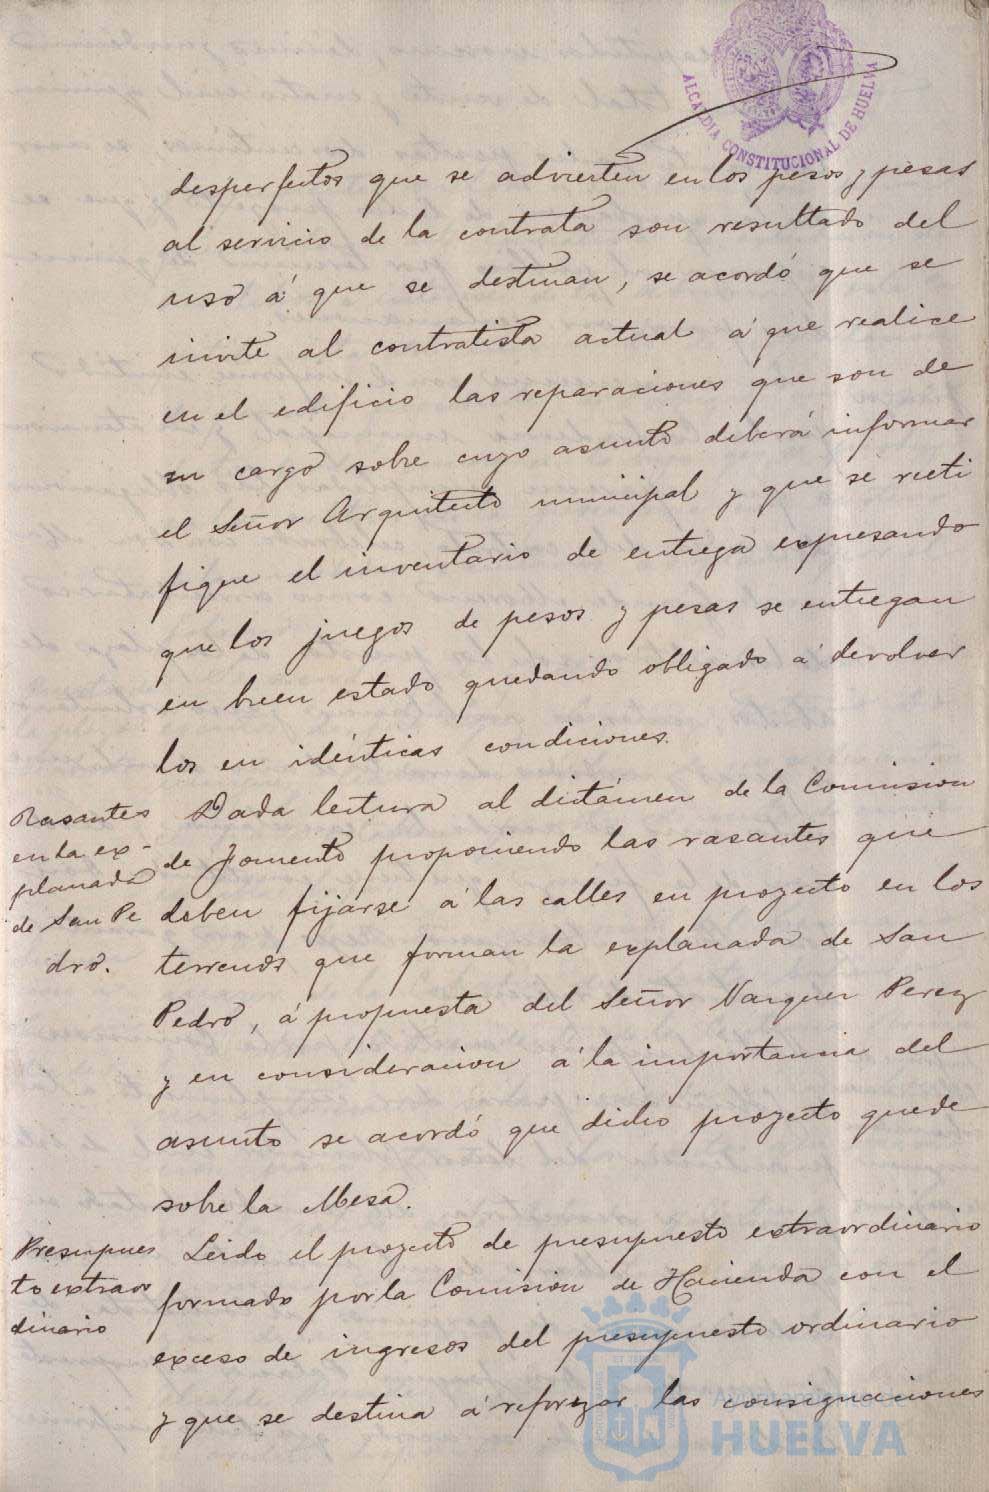 ALCALDIA CONSTITUCIONAL DE HUELVA
desperfectos que se advierten en los pesos y pesas
al servicio de la contrata son resultado del
uso á que se destinan, se acordó que se
invite al contratista actual á que realice
en el edificio las reparaciones que son de
su cargo sobre cuyo asunto deberá informar
el Señor Arquitecto municipal y que se recti
fique el inventario de entrega expresando
que los juegos de pesos y pesas se entregan
en buen estado quedando obligado á devolver
los en idénticas condiciones.
Rasantes
en la ex-
planada
de San Pe
dro.
Dada lectura al dictámen de la Comision
de Fomento proponiendo las rasantes que
deben fijarse á las calles en proyecto en los
terrenos que forman la explanada de San
Pedro, á propuesta del Señor Vazquez Perez
y en consideracion á la importancia del
asunto se acordó que dicho proyecto quede
sobre la Mesa.
Presupues
to extraor
dinario
Leido el proyecto de presupuesto extraordinario
formado por la Comision de Hacienda con el
exceso de ingresos del presupuesto ordinario
y que se destina á reforzar las consignaciones
HUELVA